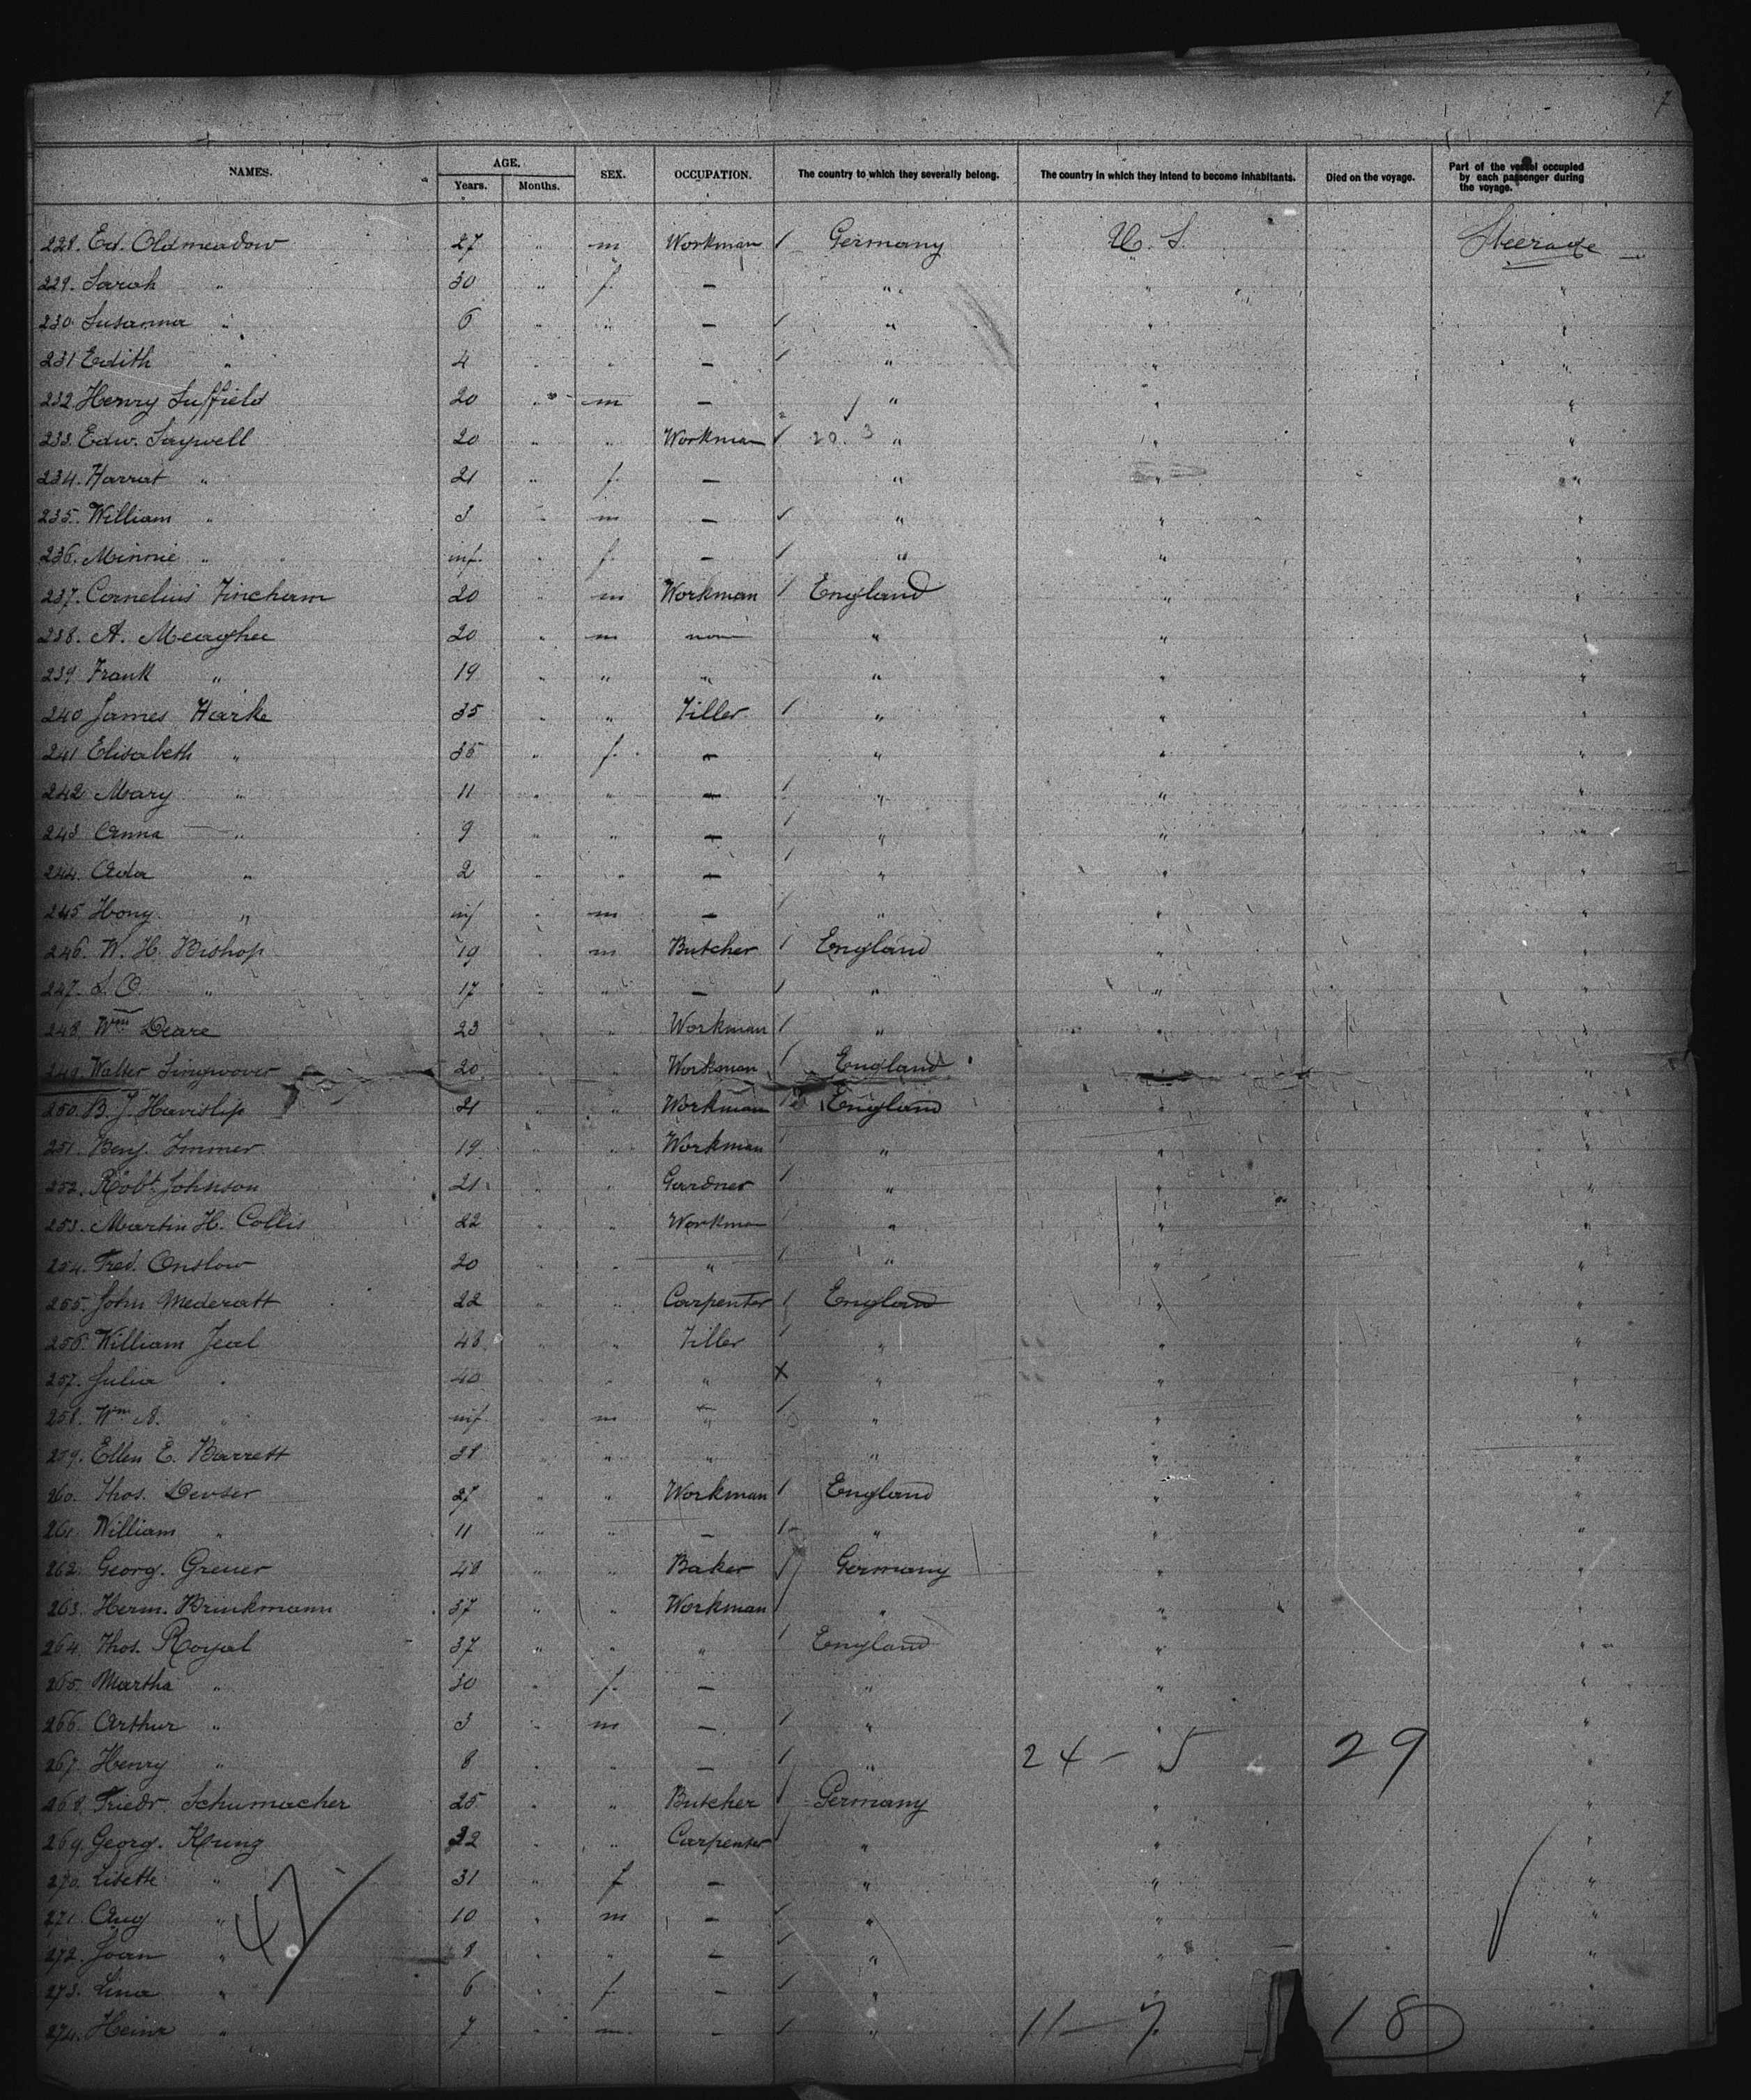 7
NAMES. AGE. Years. Months. SEX. OCCUPATION. The country to which they severally belong. The country in which they intend to become inhabitants. Died on the voyage. Part of the vessel occupied by each passenger during the voyage.
228. Ed. Oldmeadow 27 " m Workman Germany U. S. Steerage
229. Sarah " 30 " f. — " " "
230. Susanna " 6 " " — " " "
231 Edith " 4 " " — " " "
232. Henry Suffield 20 " m — " " "
233. Edw. Saywell 20 " " Workman 20. 3 " " "
234. Harrat " 21 " f. — " " "
235. William " 3 " m — " " "
236. Minnie " inf. " f. — " " "
237. Cornelius Fincham 20 " m Workman England " "
238. A. Meaghee 20 " m none " " "
239 Frank " 19 " " " " " "
240 James Harke 35 " " Tiller " " "
241 Elisabeth " 35 " f. — " " "
242 Mary " 11 " " — " " "
243 Anna " 9 " " — " " "
244. Ada " 2 " " — " " "
245 Hony " inf " m — " " "
246. W. H. Bishop 19 " m Butcher England " "
247. S. O. " 17 " " — " " "
248. Wm Deare 23 " " Workman " " "
249. Walter 20 " " Workman England " "
250. B. J. Havislip 21 " " Workman England " "
251. Benj. 19 " " Workman " " "
252. Robt Johnson 21 " " Gardner " " "
253. Martin H. Collis 22 " " Workman " " "
254. Fred. Onslow 20 " " " " " "
255. John Mederatt 22 " " Carpenter England " "
256. William Jeal 48 " " Tiller " " "
257. Julia " 40 " " " X " " "
258. Wm A. " inf. " m " " " "
259. Ellen E. Barrett 38 " " " " " "
260. Thos. Dewser 27 " " Workman England " "
261. William " 11 " " — " " "
262. Georg. Greuer 48 " " Baker Germany " "
263. Herm. Brinkmann 37 " " Workman " " "
264. Thos. Royal 37 " " " England " "
265. Martha " 30 " f. — " " "
266. Arthur " 3 " m — " " "
267. Henry " 8 " " — " 24 - 5 29 "
268. Friedr. Schumacher 25 " " Butcher Germany " "
269. Georg. Kunz 32 " " Carpenter " " "
270. Lisette " 31 " f — " " "
271. Aug " 10 " m — " " "
47
272. Joan " 8 " " — " " "
273. Lina " 6 " f — " " "
274. Heinr " 7 " m — " 11 - 7 18 "